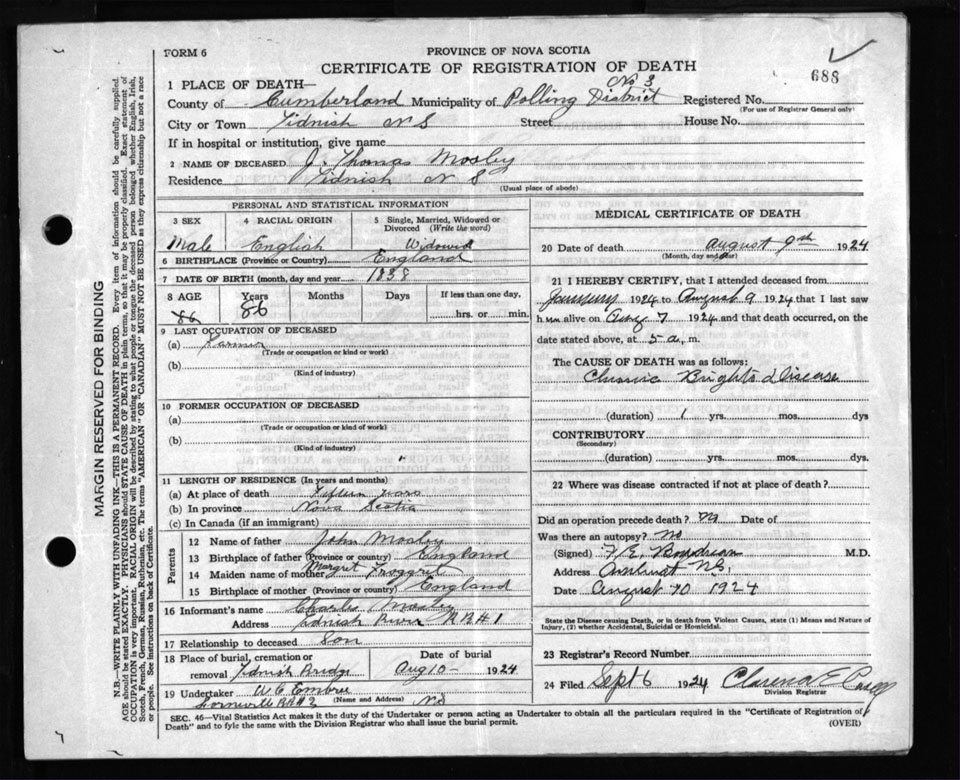 FORM 6
PROVINCE OF NOVA SCOTIA
CERTIFICATE OF REGISTRATION OF DEATH
688
MARGIN RESERVED FOR BINDING
N.B.—WRITE PLAINLY WITH UNFADING INK—THIS IS A PERMANENT RECORD. Every item of information should be carefully supplied.
AGE should be stated EXACTLY. PHYSICIANS should STATE CAUSE OF DEATH in plain terms, so that it may be properly classified. Exact statement of
OCCUPATION is very important. RACIAL ORIGIN will be described by stating to what people or tongue the deceased person belonged whether English, Irish,
Scotch, French, German, Russian, Ruthenian, etc. The terms "AMERICAN" OR "CANADIAN" MUST NOT BE USED as they express citizenship but not a race
or people. See instructions on back of Certificate.
1 PLACE OF DEATH—
County of Cumberland Municipality of Polling District No 3 Registered No.
(For use of Registrar General only)
City or Town Tidnish N S Street House No.
If in hospital or institution, give name
2 NAME OF DECEASED J. Thomas Mosley
Residence Tidnish N S
(Usual place of abode)
PERSONAL AND STATISTICAL INFORMATION
3 SEX 4 RACIAL ORIGIN 5 Single, Married, Widowed or Divorced (Write the word)
Male English Widowed
6 BIRTHPLACE (Province or Country) England
7 DATE OF BIRTH (month, day and year) 1838
8 AGE Years Months Days If less than one day,
86 86 hrs. or min.
9 LAST OCCUPATION OF DECEASED
(a) Farmer
(Trade or occupation or kind or work)
(b)
(Kind of industry)
10 FORMER OCCUPATION OF DECEASED
(a)
(Trade or occupation or kind of work)
(b)
(Kind of industry)
11 LENGTH OF RESIDENCE (In years and months)
(a) At place of death Fifteen years
(b) In province Nova Scotia
(c) In Canada (if an immigrant)
Parents
12 Name of father John Mosley
13 Birthplace of father (Province or country) England
14 Maiden name of mother Margret
15 Birthplace of mother (Province or country) England
16 Informant's name Charles Mosley
Address Tidnish River R R #1
17 Relationship to deceased Son
18 Place of burial, cremation or removal Tidnish Bridge
Date of burial Aug 10 - 1924
19 Undertaker W E Embree
(Name and Address)
Lorneville RR # 2 NS
MEDICAL CERTIFICATE OF DEATH
20 Date of death August 9th 1924
(Month, day and year)
21 I HEREBY CERTIFY, that I attended deceased from
January 1924 to August 9 1924 that I last saw
h im alive on Aug 7 1924 and that death occurred, on the
date stated above, at 5 a. m.
The CAUSE OF DEATH was as follows:
Chronic Brights Disease
(duration) 1 yrs. mos. dys
CONTRIBUTORY
(Secondary)
(duration) yrs. mos. dys.
22 Where was disease contracted if not at place of death?
Did an operation precede death? no Date of
Was there an autopsy? No
(Signed) F. E. Boudreau M.D.
Address Amherst N.S.
Date August 10 1924
State the Disease causing Death, or in death from Violent Causes, state (1) Means and Nature of
Injury, (2) whether Accidental, Suicidal or Homicidal.
23 Registrar's Record Number
24 Filed Sept 6 1924 Clarence E
Division Registrar
SEC. 46—Vital Statistics Act makes it the duty of the Undertaker or person acting as Undertaker to obtain all the particulars required in the "Certificate of Registration of
Death" and to fyle the same with the Division Registrar who shall issue the burial permit.
(OVER)